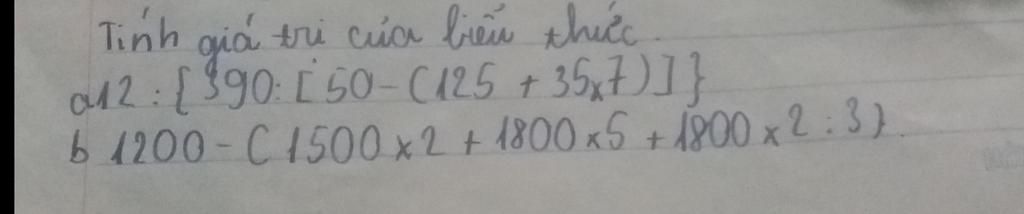 Tính giá trị của biểu thức.
a 12 : { 390 : [ 50 - ( 125 + 35 x 7 ) ] }
b 1200 - ( 1500 x 2 + 1800 x 5 + 1800 x 2 : 3 ).